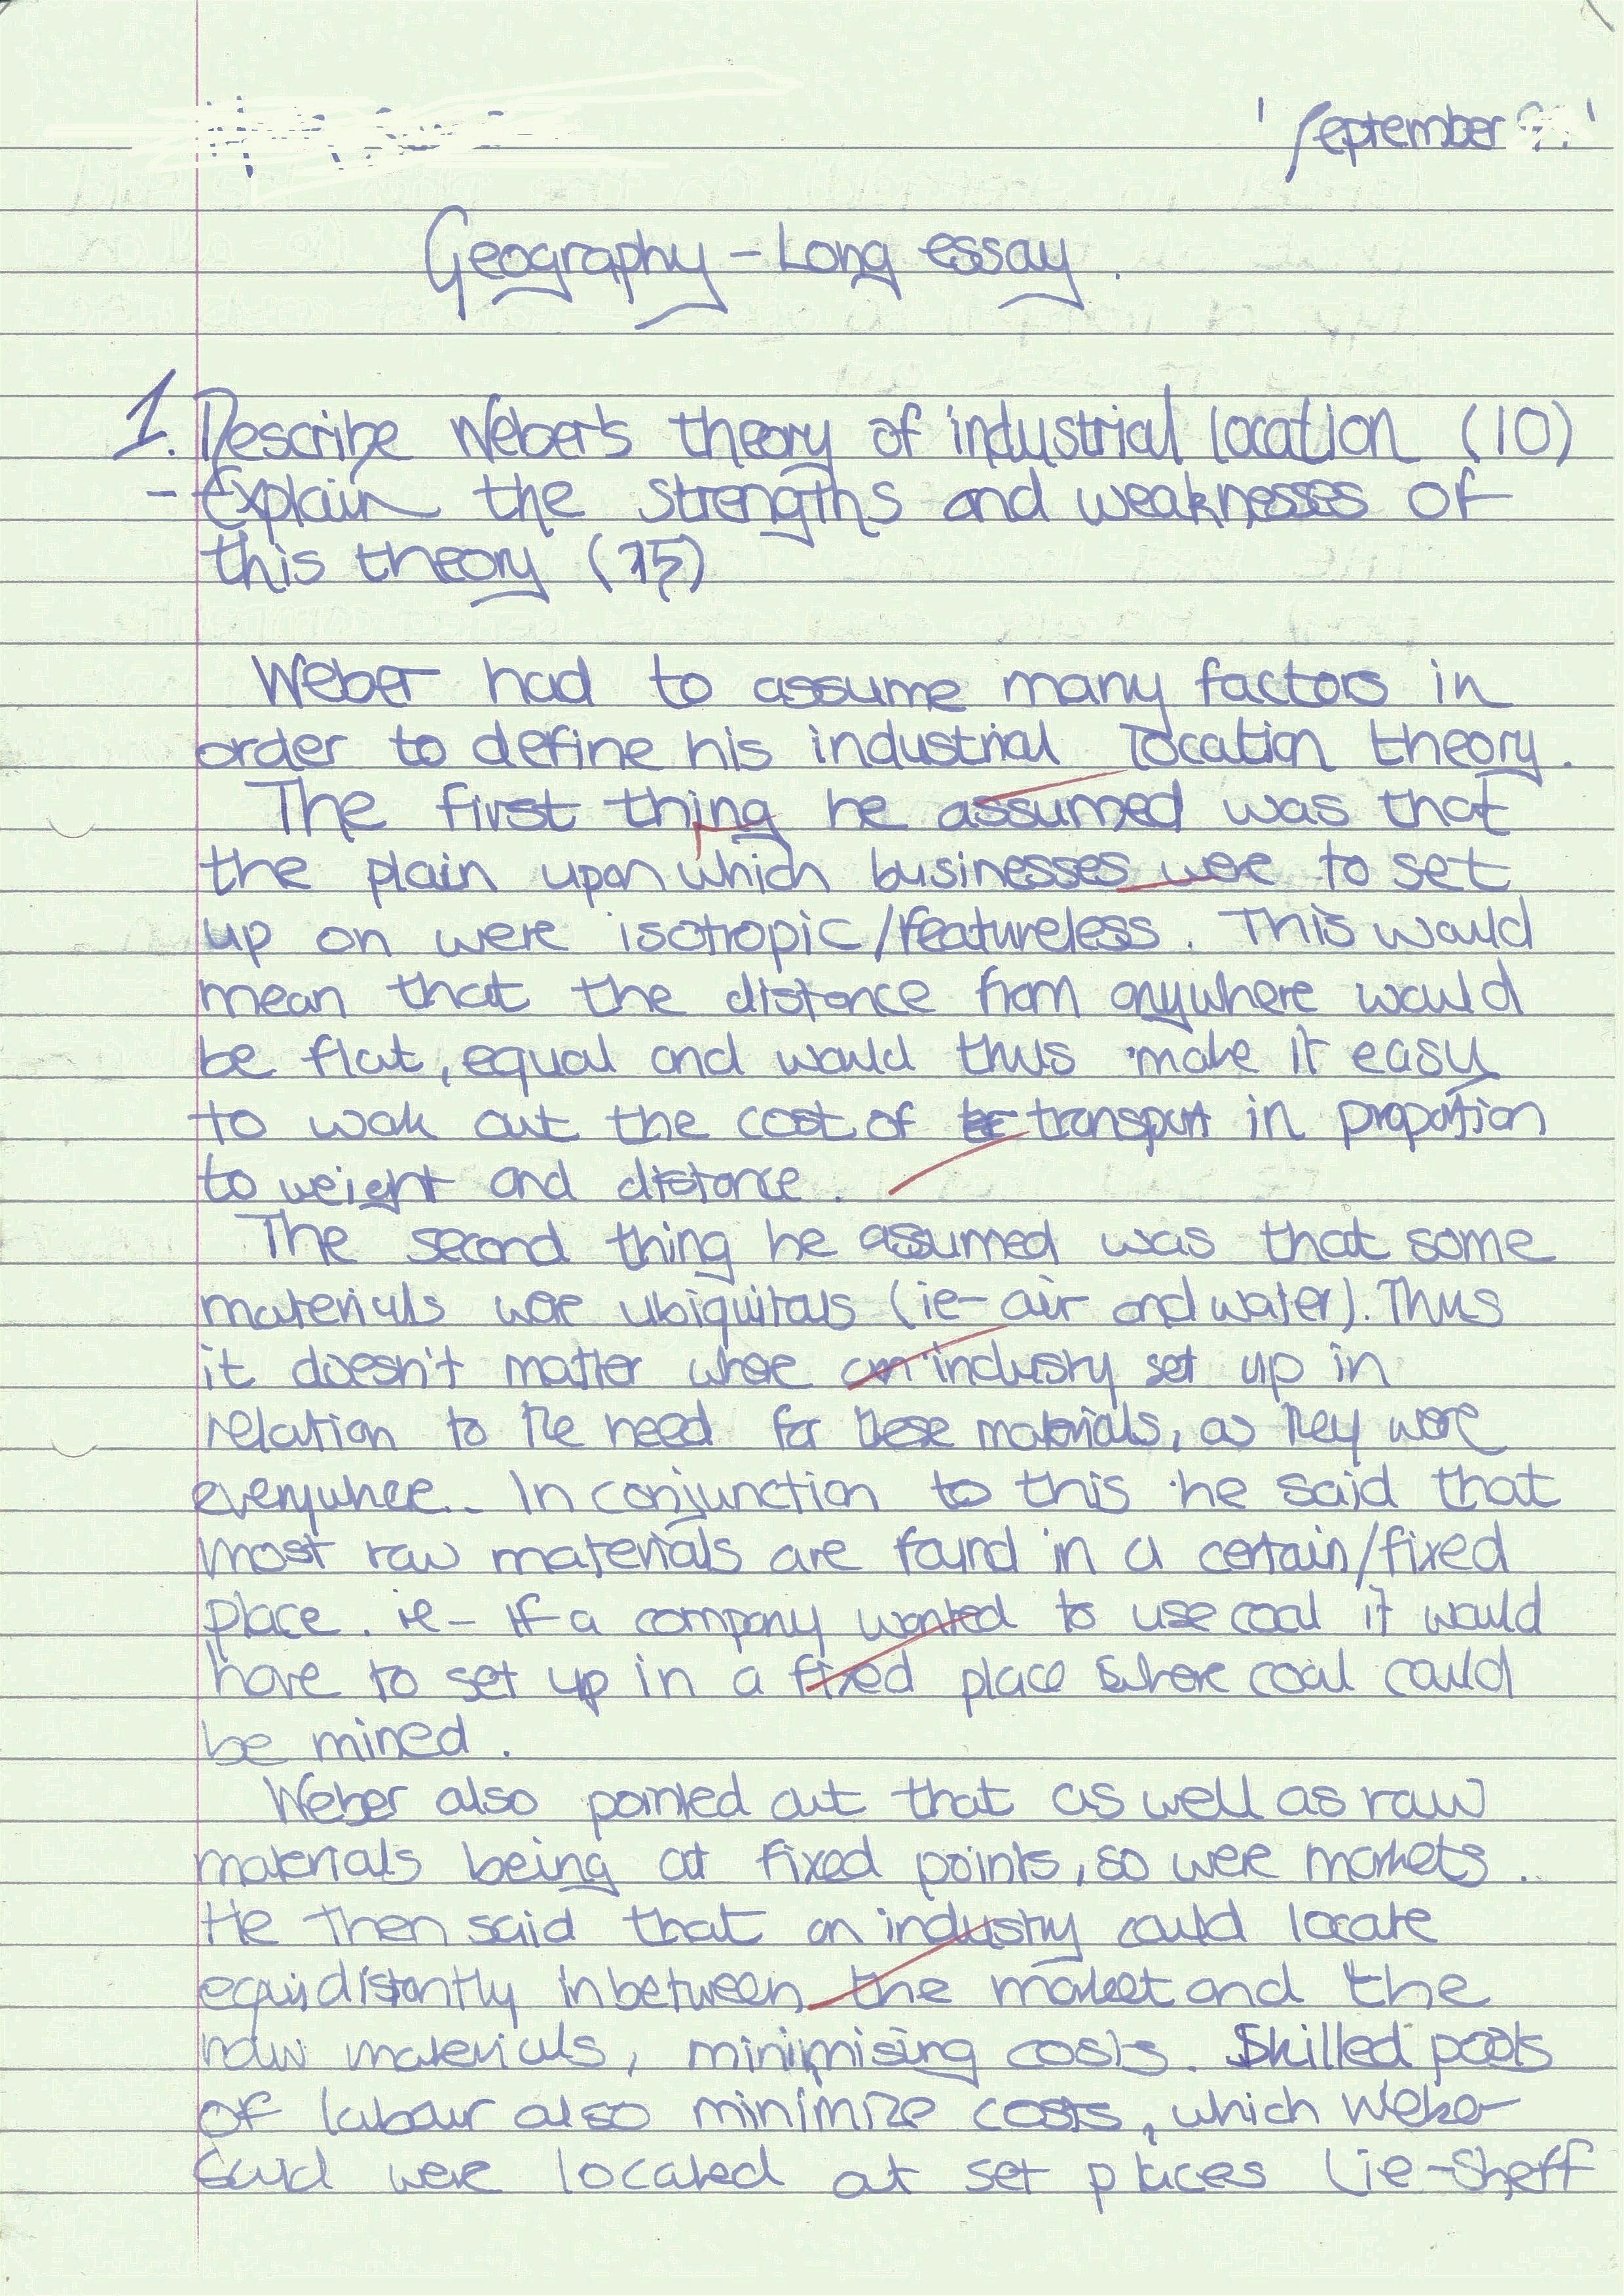 September
Geography - Long essay.
1. Describe Weber's theory of industrial location (10)
- Explain the strengths and weaknesses of
this theory (15)
Weber had to assume many factors in
order to define his industrial location theory.
The first thing he assumed was that
the plain upon which businesses were to set
up on were isotropic/featureless. This would
mean that the distance from anywhere would
be flat, equal and would thus make it easy
to work out the cost of transport in proportion
to weight and distance.
The second thing he assumed was that some
materials were ubiquitous (ie- air and water). Thus
it doesn't matter where an industry set up in
relation to the need for these materials, as they were
everywhere. In conjunction to this he said that
most raw materials are found in a certain/fixed
place. ie- If a company wanted to use coal it would
have to set up in a fixed place where coal could
be mined.
Weber also pointed out that as well as raw
materials being at fixed points, so were markets.
He then said that an industry could locate
equidistantly inbetween the market and the
raw materials, minimising costs. Skilled pools
of labour also minimize costs, which Weber
said were located at set places (ie-Sheff